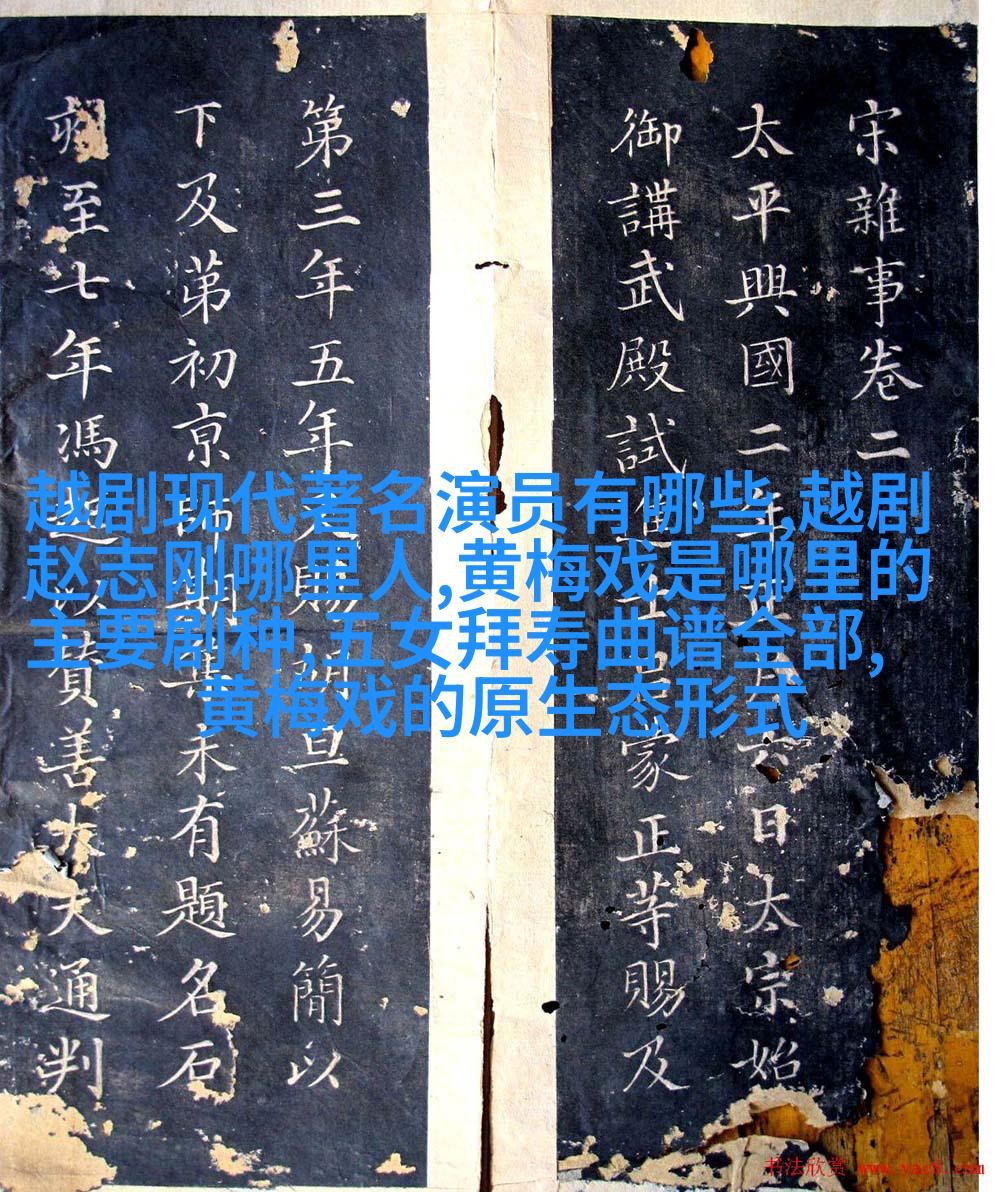 宋雜事卷二
太平興國二年月六日太宗始
御講武殿試蒙正等賜及
第三年五年賜旦蘇易簡以
下及苐初京師期集未有題名石
至七年馮賛善大夫通判
越剧现代著名演员有哪些,越剧
赵志刚哪里人,黄梅戏是哪里的
主要剧种,五女拜寿曲谱全部,
黄梅戏的原生态形式
书法欣赏 www.yac8.com